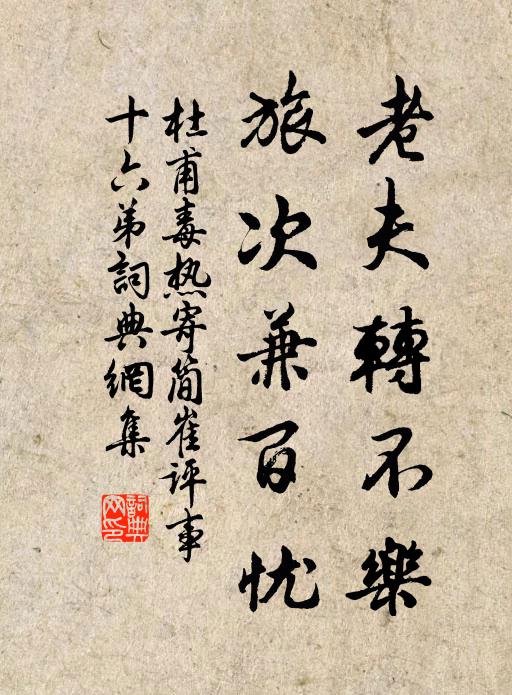 老夫轉不樂
旅次兼百忧
杜甫毒热寄简崔评事
十六弟詞典網集
詞典網印